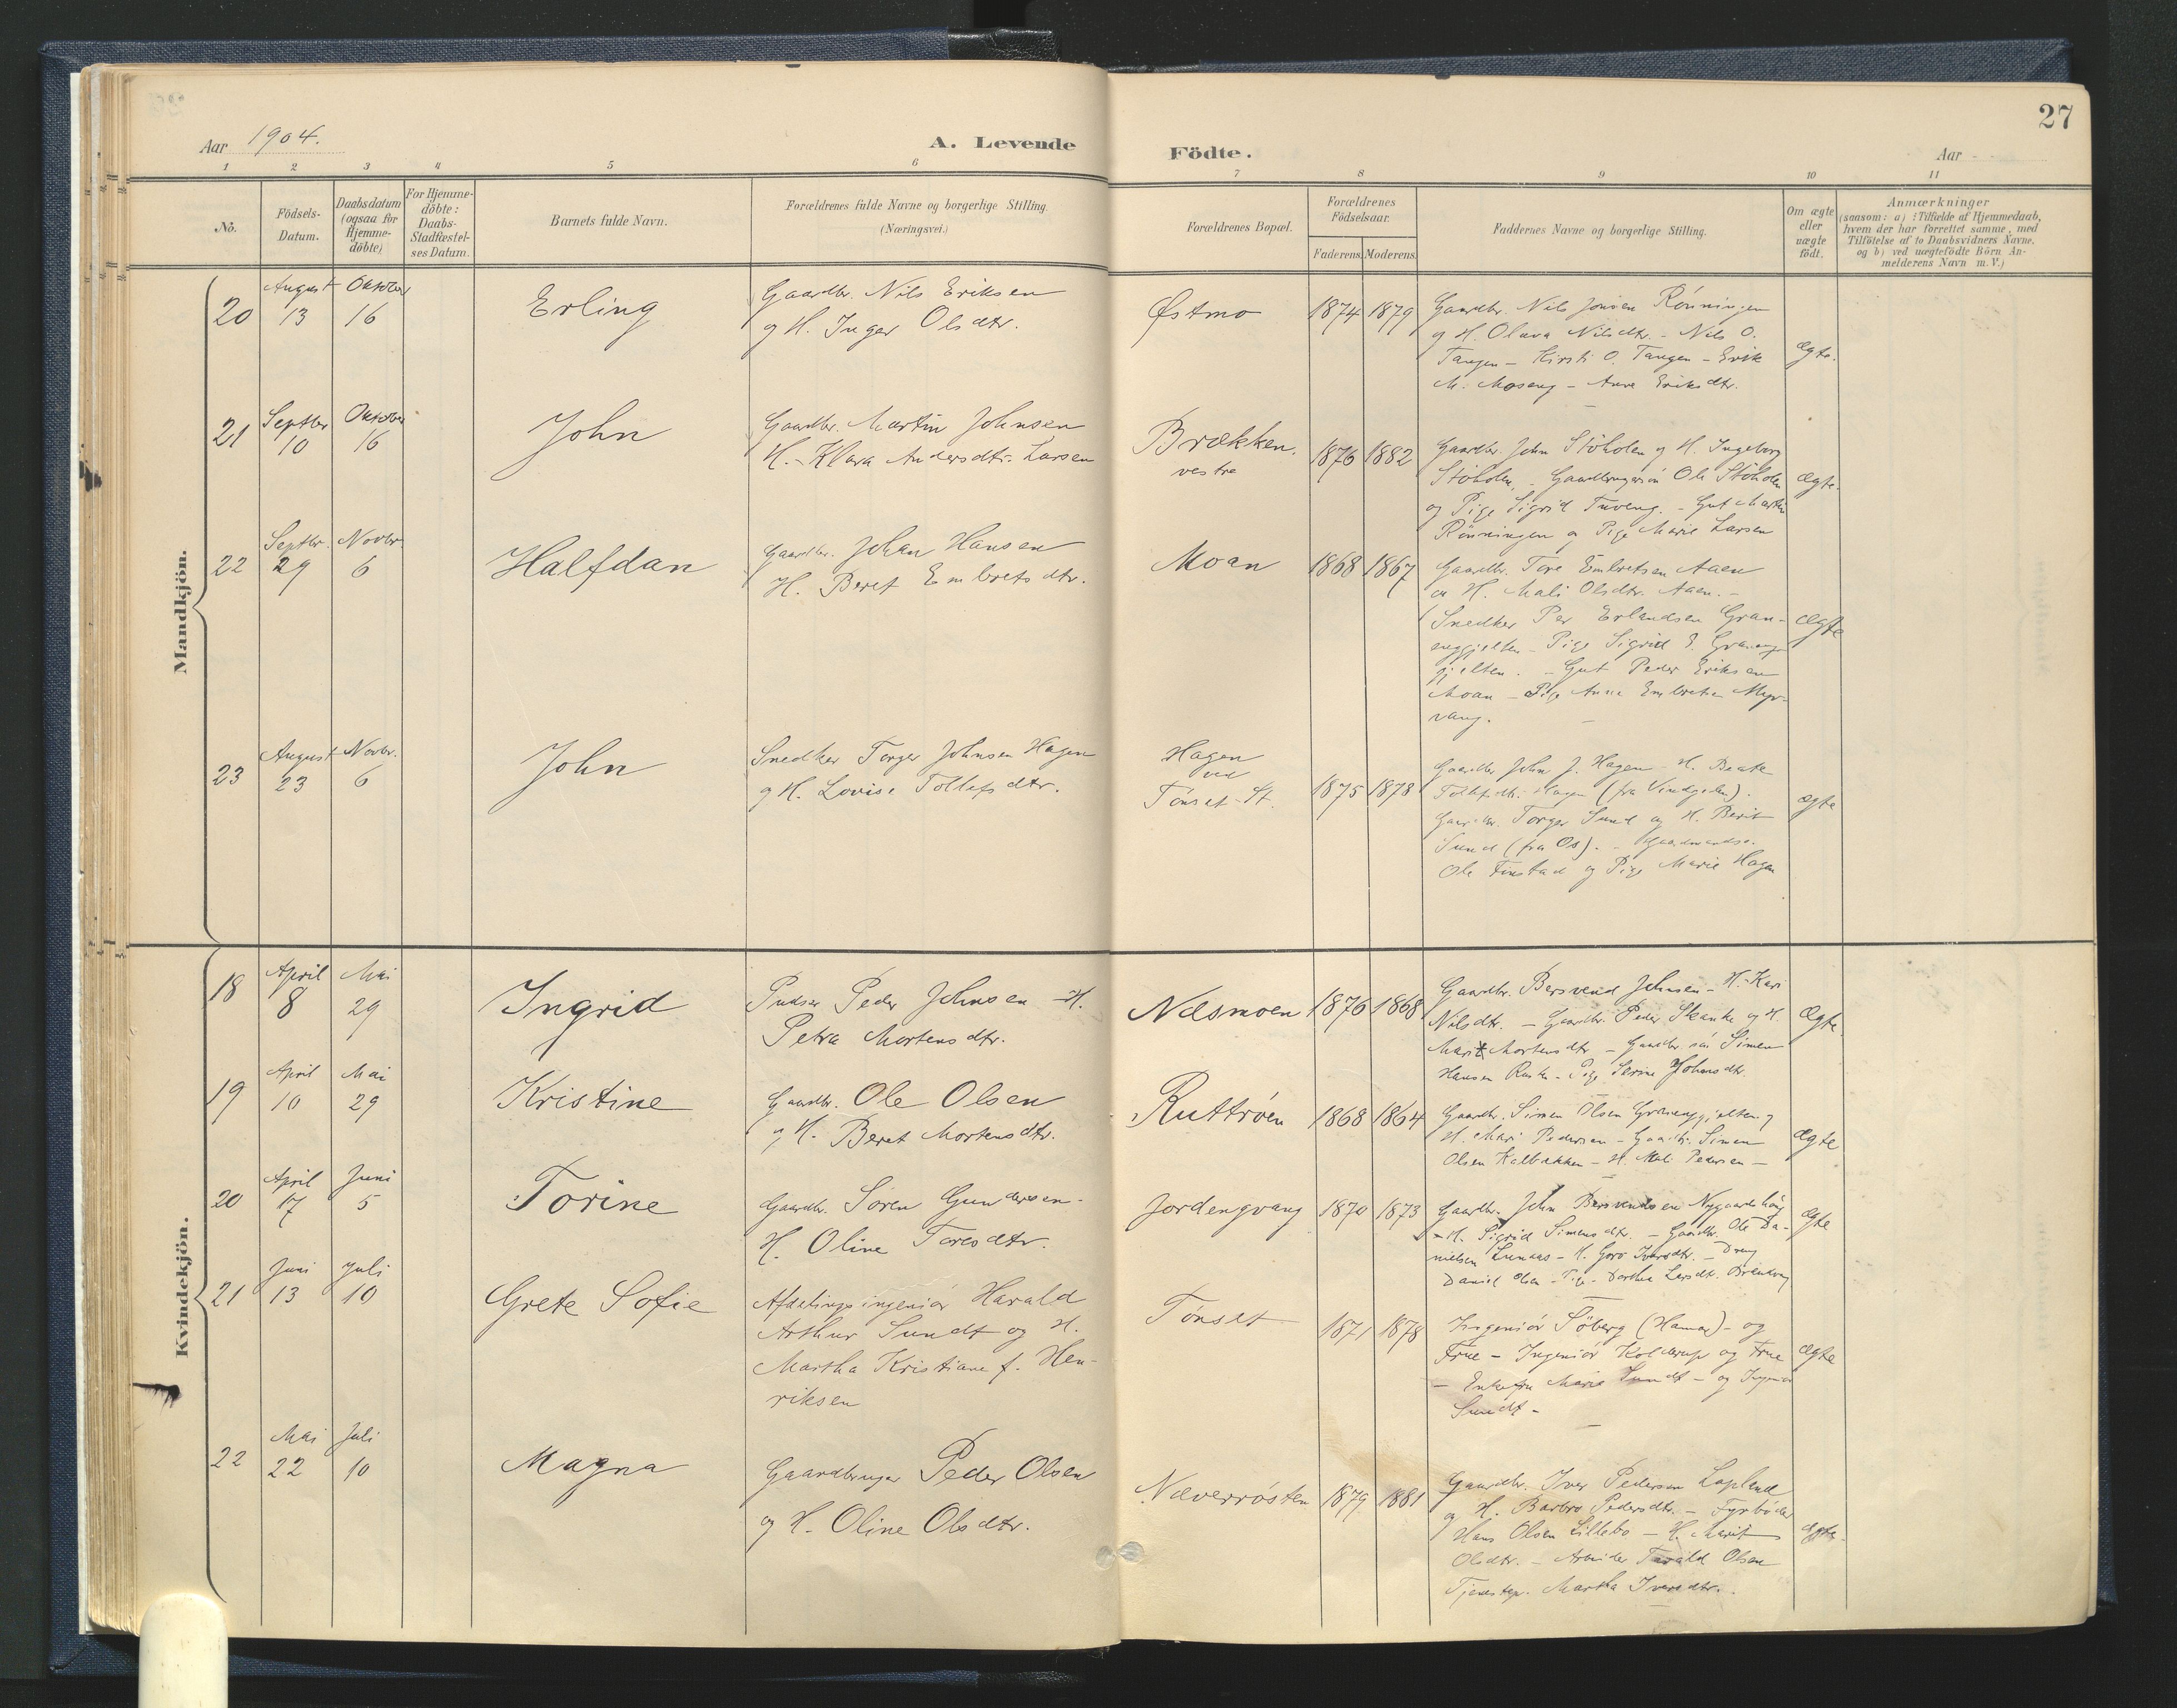 27
Aar 1904.
A. Levende Födte.
Aar
1 2 3 4 5 6 7 8 9 10 11
No.
Födsels-
Datum.
Daabsdatum
(ogsaa for
Hjemme-
döbte)
For Hjemme-
döbte:
Daabs-
Stadfæstel-
ses Datum.
Barnets fulde Navn.
Forældrenes fulde Navne og borgerlige Stilling.
(Næringsvei.)
Forældrenes Bopæl.
Forældrenes
Födselsaar.
Faderens. Moderens.
Faddernes Navne og borgerlige Stilling.
Om ægte
eller
uægte
födt.
Anmærkninger
(saasom: a) i Tilfælde af Hjemmedaab,
hvem der har forrettet samme, med
Tilföielse af to Daabsvidners Navne.
og b) ved uægtefödte Börn An-
melderens Navn m. V.)
Mandkjön.
20
August
13
Oktober
16
Erling
Gaardbr. Nils Eriksen
og H. Inger Olsdtr.
Østmo
1874 1879
Gaardbr. Nils Jonsen Rönningen
og H. Olava Nilsdtr. - Nils O.
Tangen - Kirsti O. Tangen - Erik
M. Moseng - Anne Eriksdtr.
ægte.
21
Septbr
10
Oktober
16
John
Gaardbr. Martin Johnsen
H. - Klara Andersdtr. Larsen
Brækken.
vestre
1876 1882
Gaardbr. John Stöholen og H. Ingeborg
Stöholen, - Ole Stöholen
og Pige Sigrid Tuveng. - Gut Martin
Rönningen og Pige Marie Larsen
Ægte.
22
Septbr.
29
Novbr.
6
Halfdan
Gaardbr. Johan Hansen
H. Beret Embretsdtr.
Moan
1868 1867
Gaardbr. Tore Embretsen Aaen
og H. Mali Olsdtr. Aaen. -
Snedker Per Erlandsen Gran-
- Pige Sigrid E.
- Gut Peder Eriksen
Moan - Pige Anne Embretsen Myr-
vang.
Ægte
23
August
23
Novbr.
6
John
Snedker Torger Johnsen Hagen
og H. Lovise Tollefsdtr.
Hagen
ved
Tönset St.
1875 1878
Gaardbr John J. Hagen - H. Beate
Tollefsdtr. Hagen (fra Vindgelen).
Gaardbr. Torger Sund og H. Berit
Sund (fra Os). -
Ole Finstad og Pige Marie Hagen
ægte
Kvindekjön.
18
April
8
Mai
29
Ingrid
Pudser Peder Johnsen - H.
Petra Mortensdtr.
Næsmoen
1876 1868
Gaardbr. Bersvend Johnsen - H. Kari
Nilsdtr. - Gaardbr. Peder Skanke og H.
Marit Mortensdtr - Simen
Hansen - Pige Serine Johnsdtr.
Ægte.
19
April
10
Mai
29
Kristine
Gaardbr. Ole Olsen
og H. Beret Mortensdtr.
Ruttröen
1868 1864
Gaardbr. Simen Olsen og
H. Mari Pedersen - Gaardbr. Simen
Olsen Kalbakken - H. Mali Pedersen -
Ægte
20
April
17
Juni
5
Torine
Gaardbr. Sören Gundersen -
H. Oline Toresdtr.
Jordengvang
1870 1873
Gaardbr. John Bersvendsen Nygaardshög
- H. Sigrid Simensdtr. - Gaardbr. Ole Da-
nielsen Lunaas - H. Goro Iversdtr. - Dreng
Daniel Olsen - Pige Dorthea Larsdtr.
ægte
21
Juni
13
Juli
10
Grete Sofie
Afdelingsingeniör Harald
Arthur Sundt og H.
Martha Kristiane f. Hen-
riksen
Tönset
1871 1878
Ingeniör Söberg (Hamar) - og
Frue - Ingeniör Kolderup og Frue
- Enkefru Marie Sundt - og Ingeniör
Sundt -
Ægte
22
Mai
22
Juli
10
Magna
Gaardbruger Peder Olsen
og H. Oline Olsdtr.
Næverrösten
1879 1881
Gaardbr. Iver Pedersen Lapland
og H. Barbro Pedersdtr. - Fyrböder
Hans Olsen Lillebo - H. Marit
Olsdtr. - Arbeider Tarald Olsen
Tjenestep. Martha Iversdtr.
Ægte.